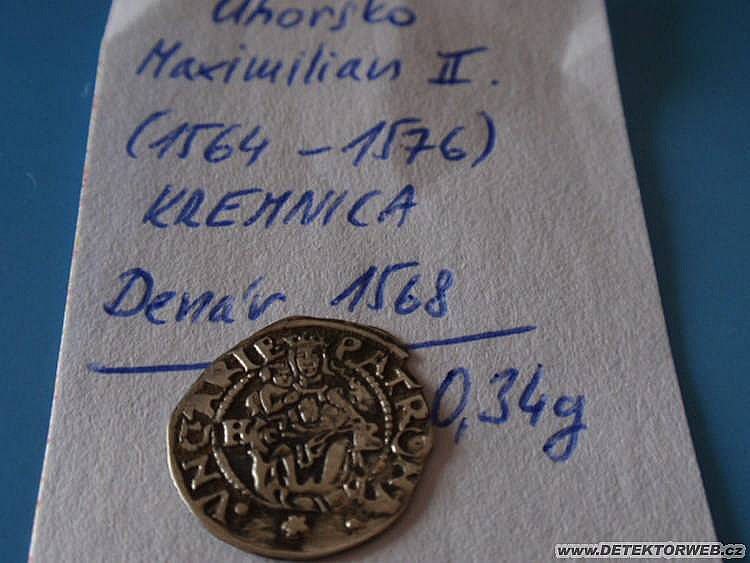 Uhorsko
Maximilian II.
(1564 - 1576)
KREMNICA
Denár 1568
0,34g
VNGARIE
PATRONA
K B
www.DETEKTORWEB.cz